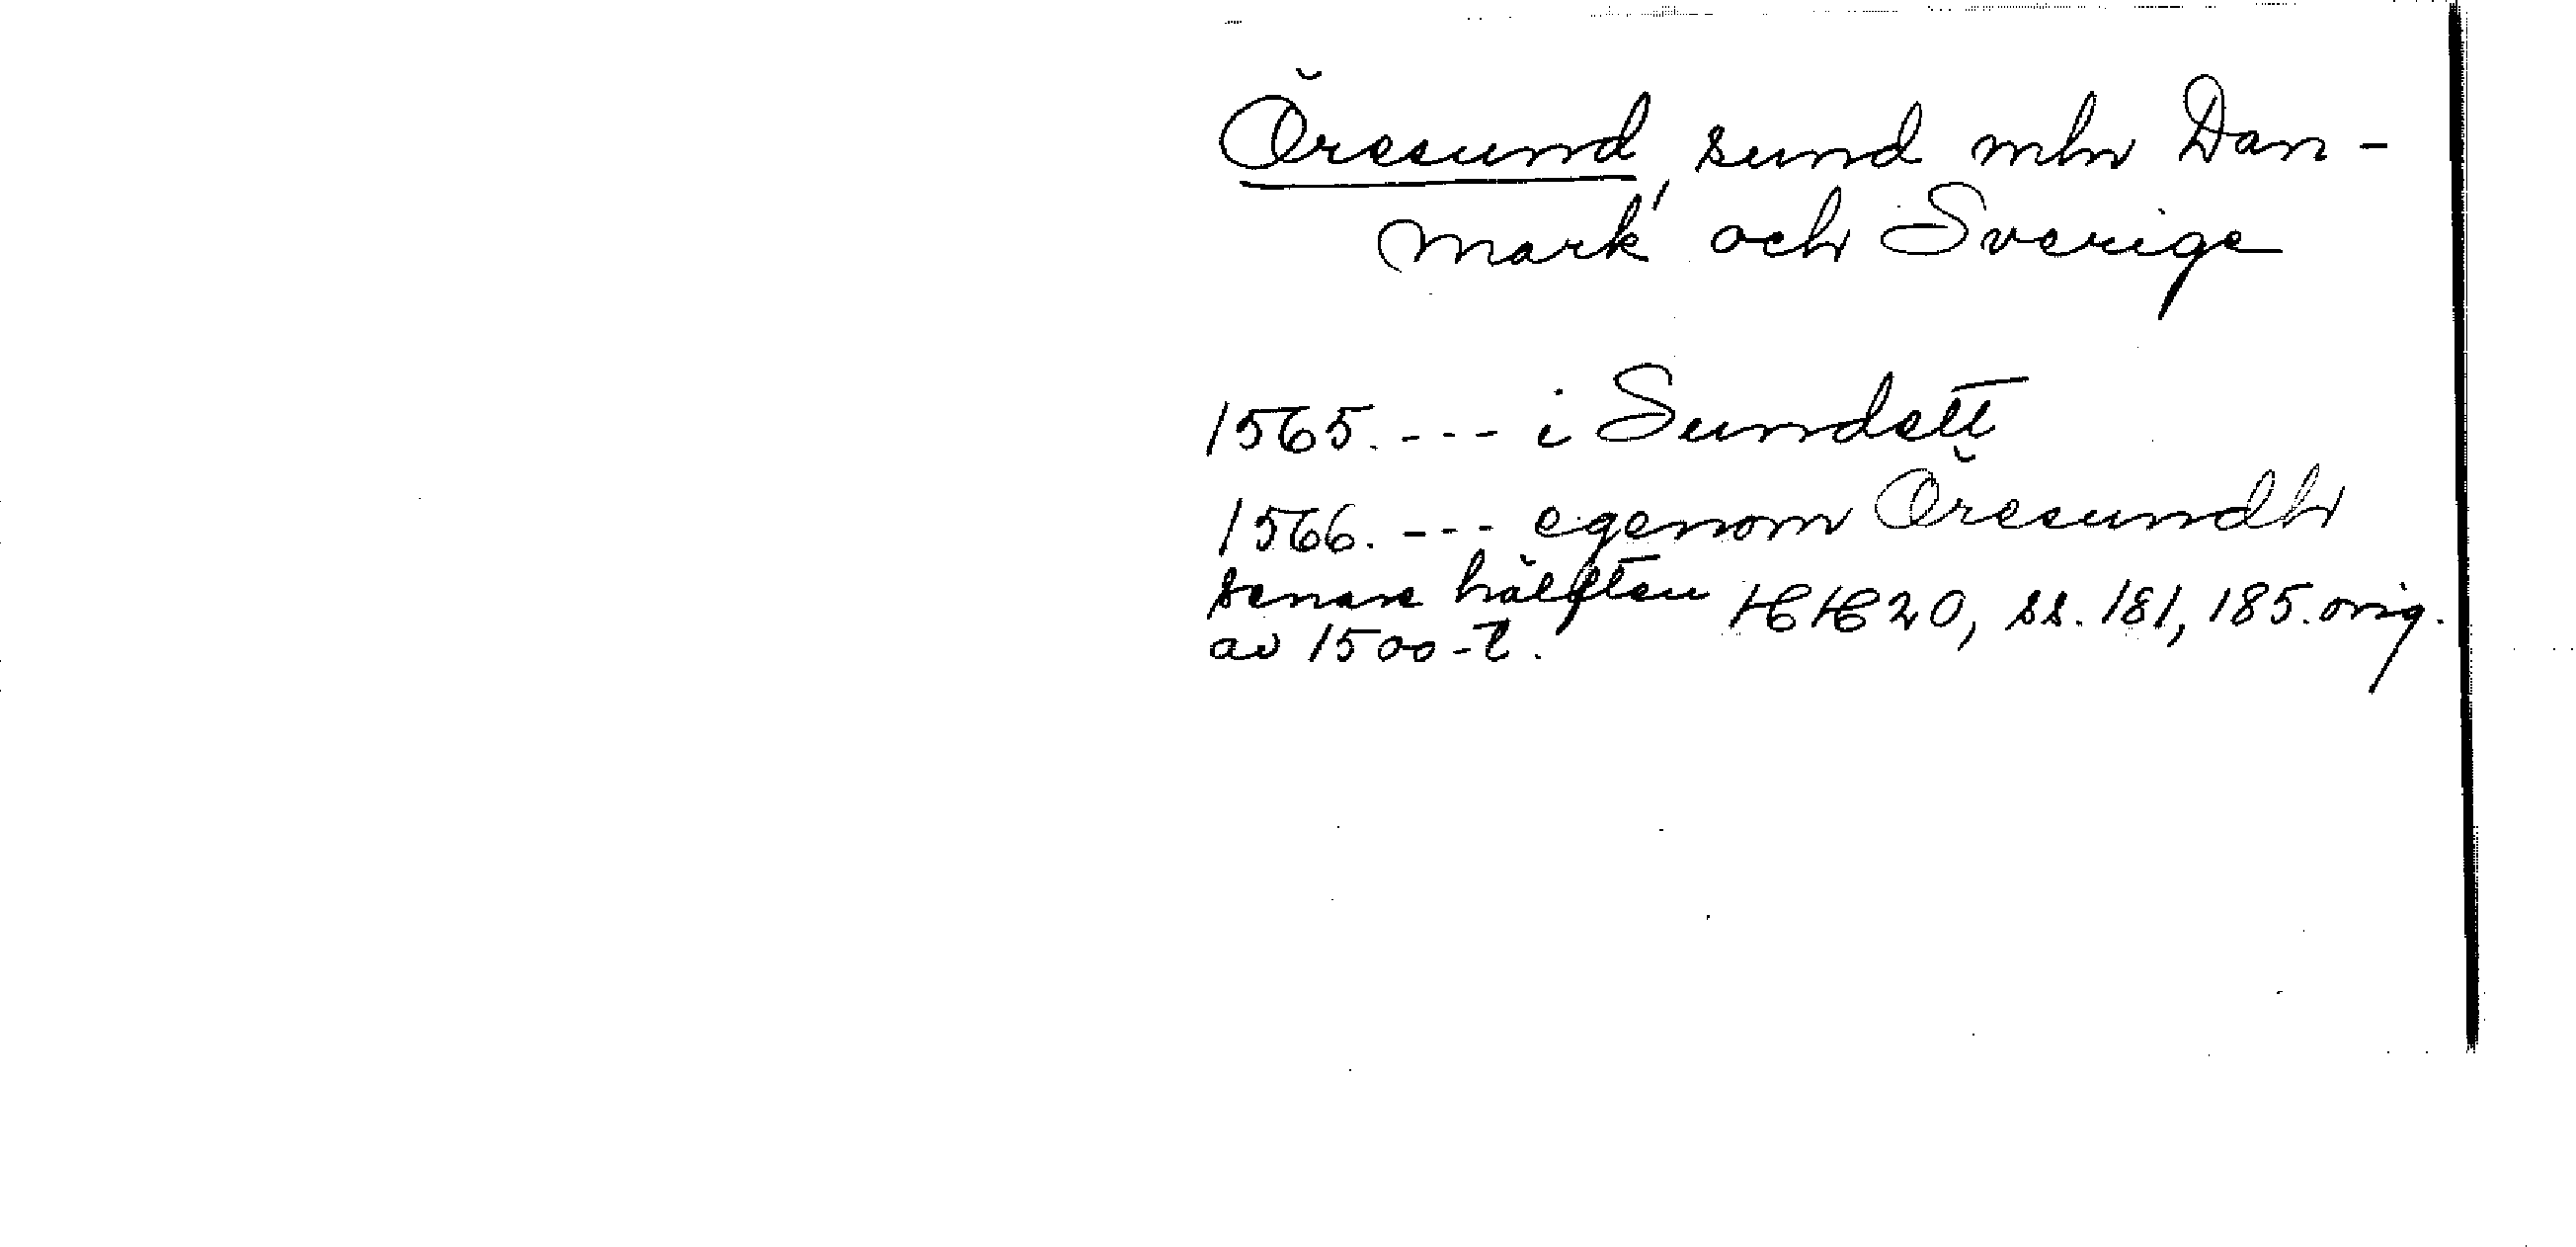 Öresund, sund mln Dan-
mark och Sverige
1565. --- i Sundett
1566. --- egenom Öresundh
senare hälften HH 20, ss. 181, 185. orig.
av 1500-t.